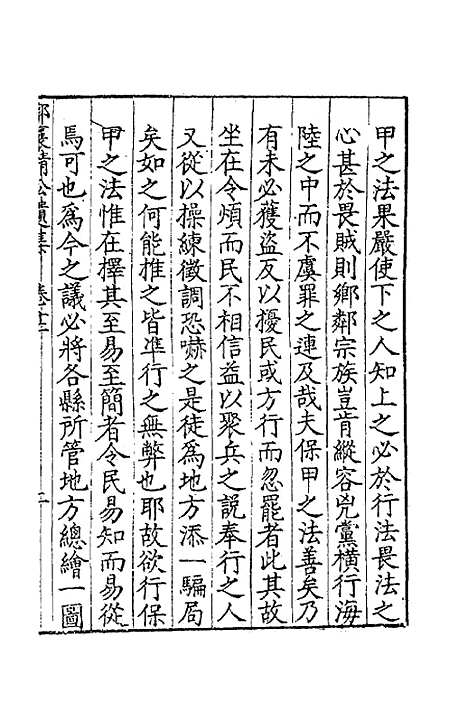 甲之法果嚴使下之人知上之必於行法畏法之
心甚於畏賊則鄉鄰宗族豈肯縱容兇黨橫行海
陸之中而不虞罪之連及哉夫保甲之法善矣乃
有未必獲盜反以擾民或方行而忽罷者此其故
坐在令煩而民不相信益以聚兵之說奉行之人
又從以操練徵調恐嚇之是徒爲地方添一騙局
矣如之何能推之皆準行之無弊也耶故欲行保
甲之法惟在擇其至易至簡者令民易知而易從
焉可也爲今之議必將各縣所管地方總繪一圖
鄒襄惠公遺集 卷